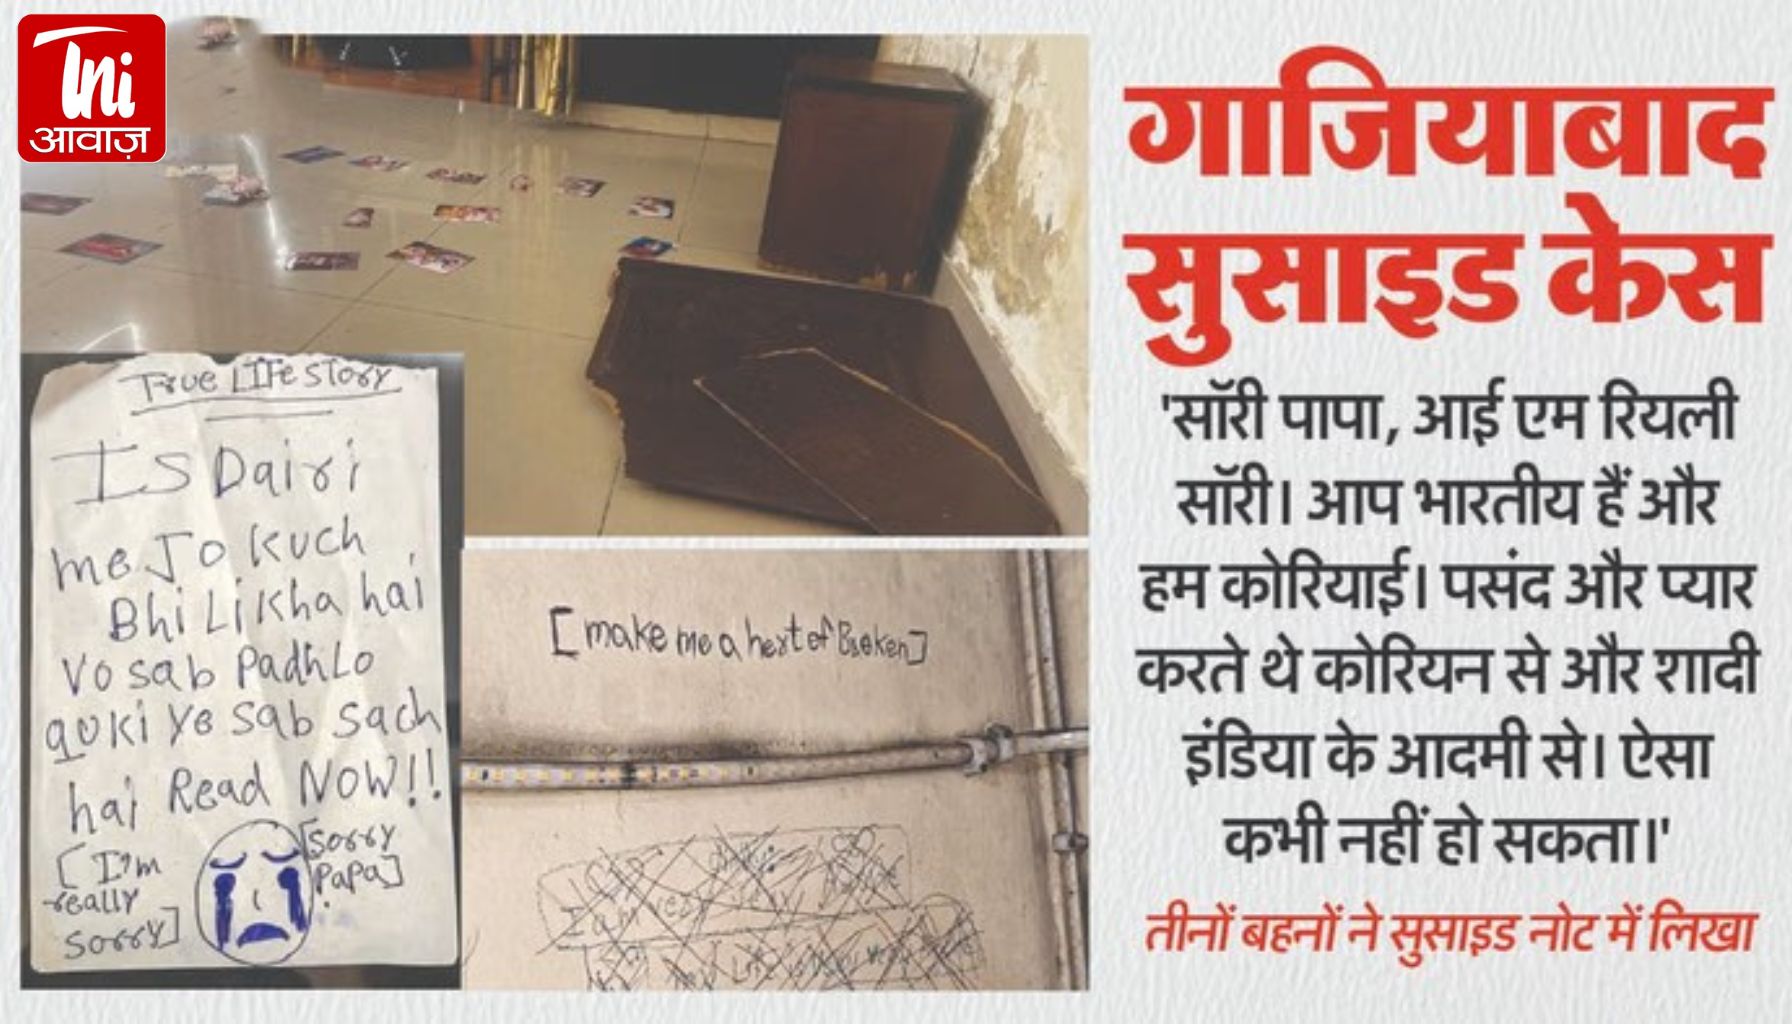 Ini
आवाज़
True LIFe story
Is Dairi
me Jo kuch
Bhi Likha hai
Vo sab Padh Lo
quki ye sab sach
hai Read NOW!!
[I'm
really
sorry]
[sorry
PaPa]
[make me a hert of Broken]
गाजियाबाद
सुसाइड केस
'सॉरी पापा, आई एम रियली
सॉरी। आप भारतीय हैं और
हम कोरियाई। पसंद और प्यार
करते थे कोरियन से और शादी
इंडिया के आदमी से। ऐसा
कभी नहीं हो सकता।'
तीनों बहनों ने सुसाइड नोट में लिखा